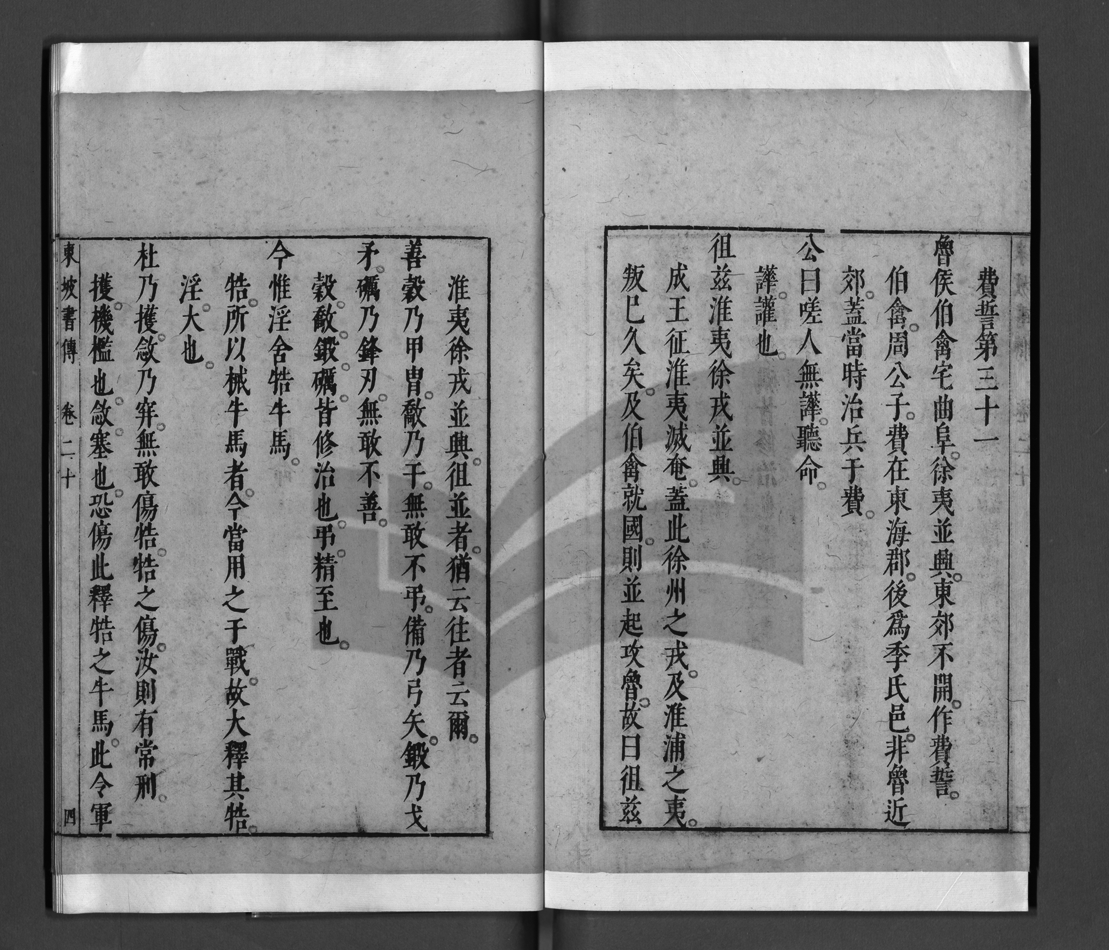 費誓第三十一
魯侯伯禽宅曲阜。徐夷並興。東郊不開。作費誓。
伯禽。周公子。費在東海郡。後爲季氏邑。非魯近
郊。蓋當時治兵于費。
公曰嗟人無譁。聽命。
譁。讙也。
徂兹淮夷徐戎並興。
成王征淮夷滅奄。蓋此徐州之戎。及淮浦之夷。
叛巳久矣。及伯禽就國。則並起攻魯。故曰徂兹
淮夷徐戎並興。徂並者。猶云往者云爾。
善敹乃甲冑。敿乃干。無敢不弔。備乃弓矢。鍛乃戈
矛。礪乃鋒刃。無敢不善。
敹。敿。鍛。礪。皆修治也。弔。精至也。
今惟淫舍牿牛馬。
牿。所以械牛馬者。今當用之于戰。故大釋其牿。
淫。大也。
杜乃擭。敜乃穽。無敢傷牿。牿之傷。汝則有常刑。
擭。機檻也。敜。塞也。恐傷此釋牿之牛馬。此令軍
東坡書傳 卷二十 四